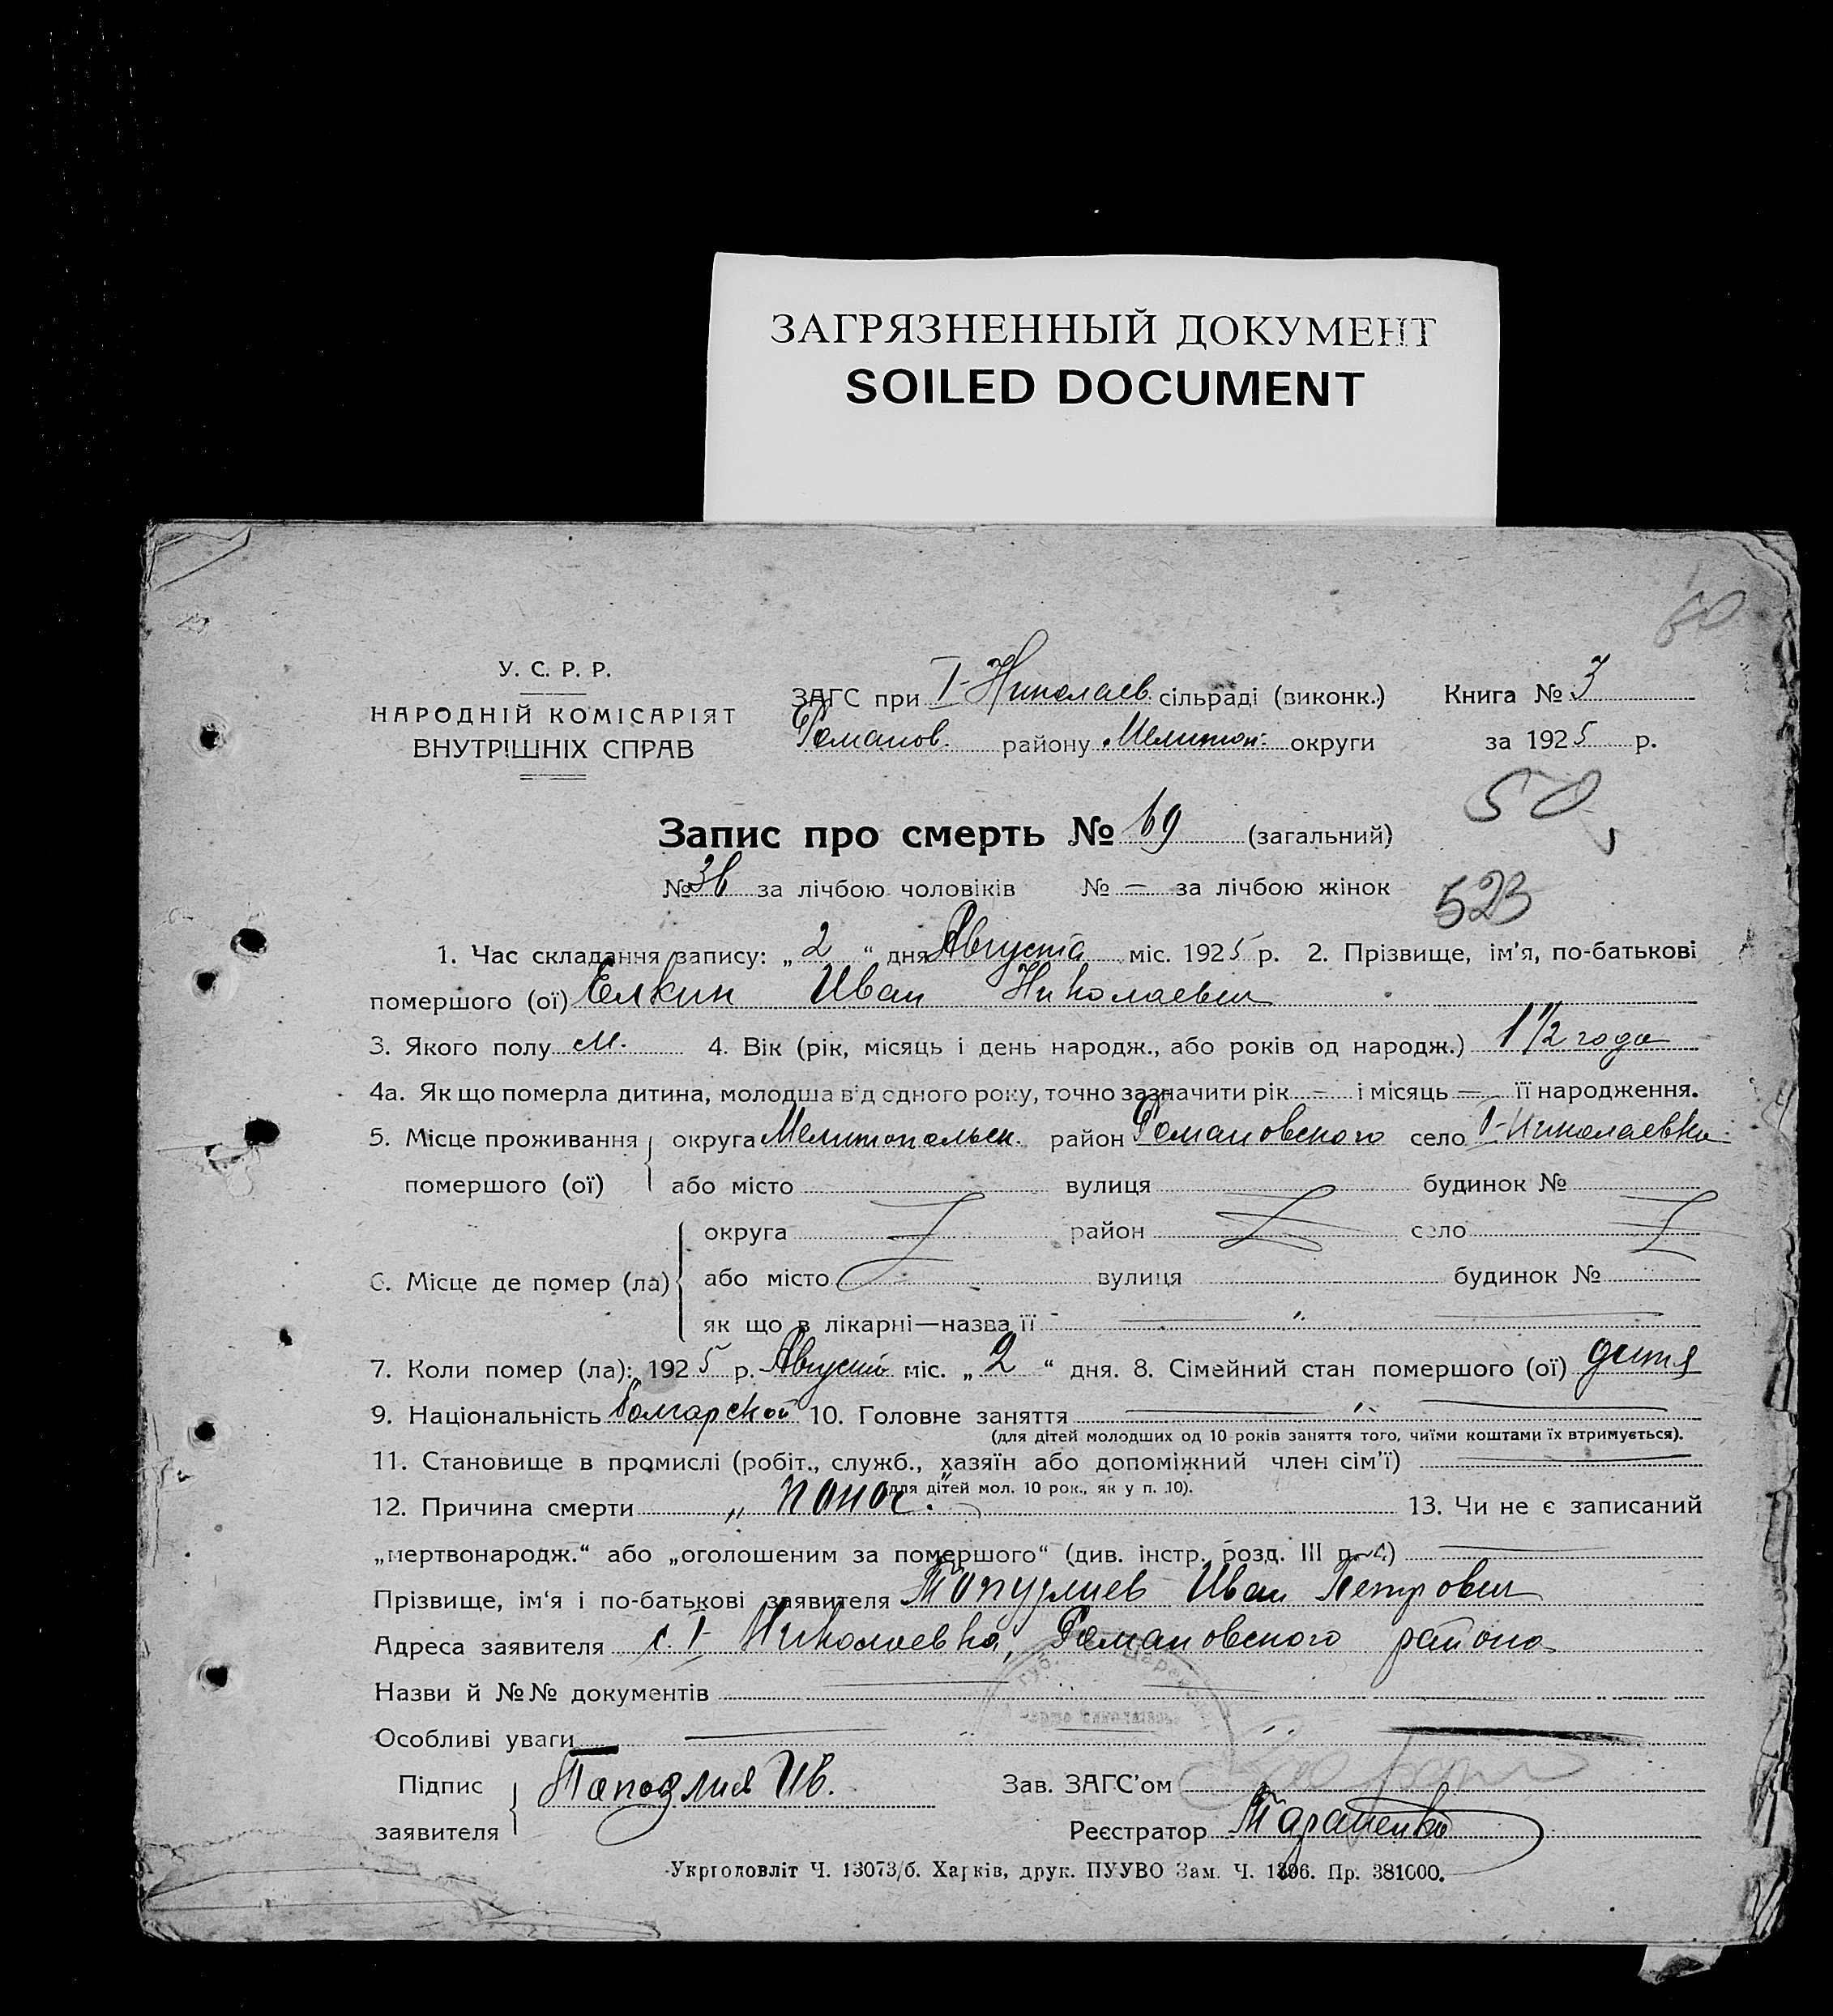 ЗАГРЯЗНЕННЫЙ ДОКУМЕНТ
SOILED DOCUMENT
60
У. С. Р. Р.
НАРОДНІЙ КОМІСАРІЯТ
ВНУТРІШНІХ СПРАВ
ЗАГС при I-Николаев. сільраді (виконк.) Книга № 3
Романов. району Мелитоп. округи за 1925 р.
50
Запис про смерть № 69 (загальний)
№ 36 за лічбою чоловіків № — за лічбою жінок
523
1. Час складання запису: „2“ дня Августа міс. 1925 р. 2. Прізвище, ім'я, по-батькові
помершого (ої) Елкин Иван Николаевич
3. Якого полу м. 4. Вік (рік, місяць і день народж., або років од народж.) 1 1/2 года
4а. Як що померла дитина, молодша від одного року, точно зазначити рік — і місяць — її народження.
5. Місце проживання округа Мелитопольск. район Романовского село I-Николаевка
помершого (ої) або місто вулиця будинок №
округа район село
6. Місце де помер (ла) або місто вулиця будинок №
як що в лікарні—назва її — „ —
7. Коли помер (ла): 1925 р. Август міс. „2“ дня. 8. Сімейний стан помершого (ої) дитя
9. Національність болгарской 10. Головне заняття — „ —
(для дітей молодших од 10 років заняття того, чиїми коштами їх втримується).
11. Становище в промислі (робіт., служб., хазяїн або допоміжний член сім'ї) —
(для дітей мол. 10 рок., як у п. 10).
12. Причина смерти „понос.“ 13. Чи не є записаний
„мертвонародж.“ або „оголошеним за помершого“ (див. інстр. розд. III п. 4) —
Прізвище, ім'я і по-батькові заявителя Топузлиев Иван Петрович
Адреса заявителя с. I-Николаевка, Романовского района
Назви й №№ документів —
Особливі уваги —
Підпис Ив. Зав. ЗАГС'ом
заявителя Реєстратор Тараненко
Укрголовліт Ч. 13073/б. Харків, друк. ПУУВО Зам. Ч. 1396. Пр. 381000.